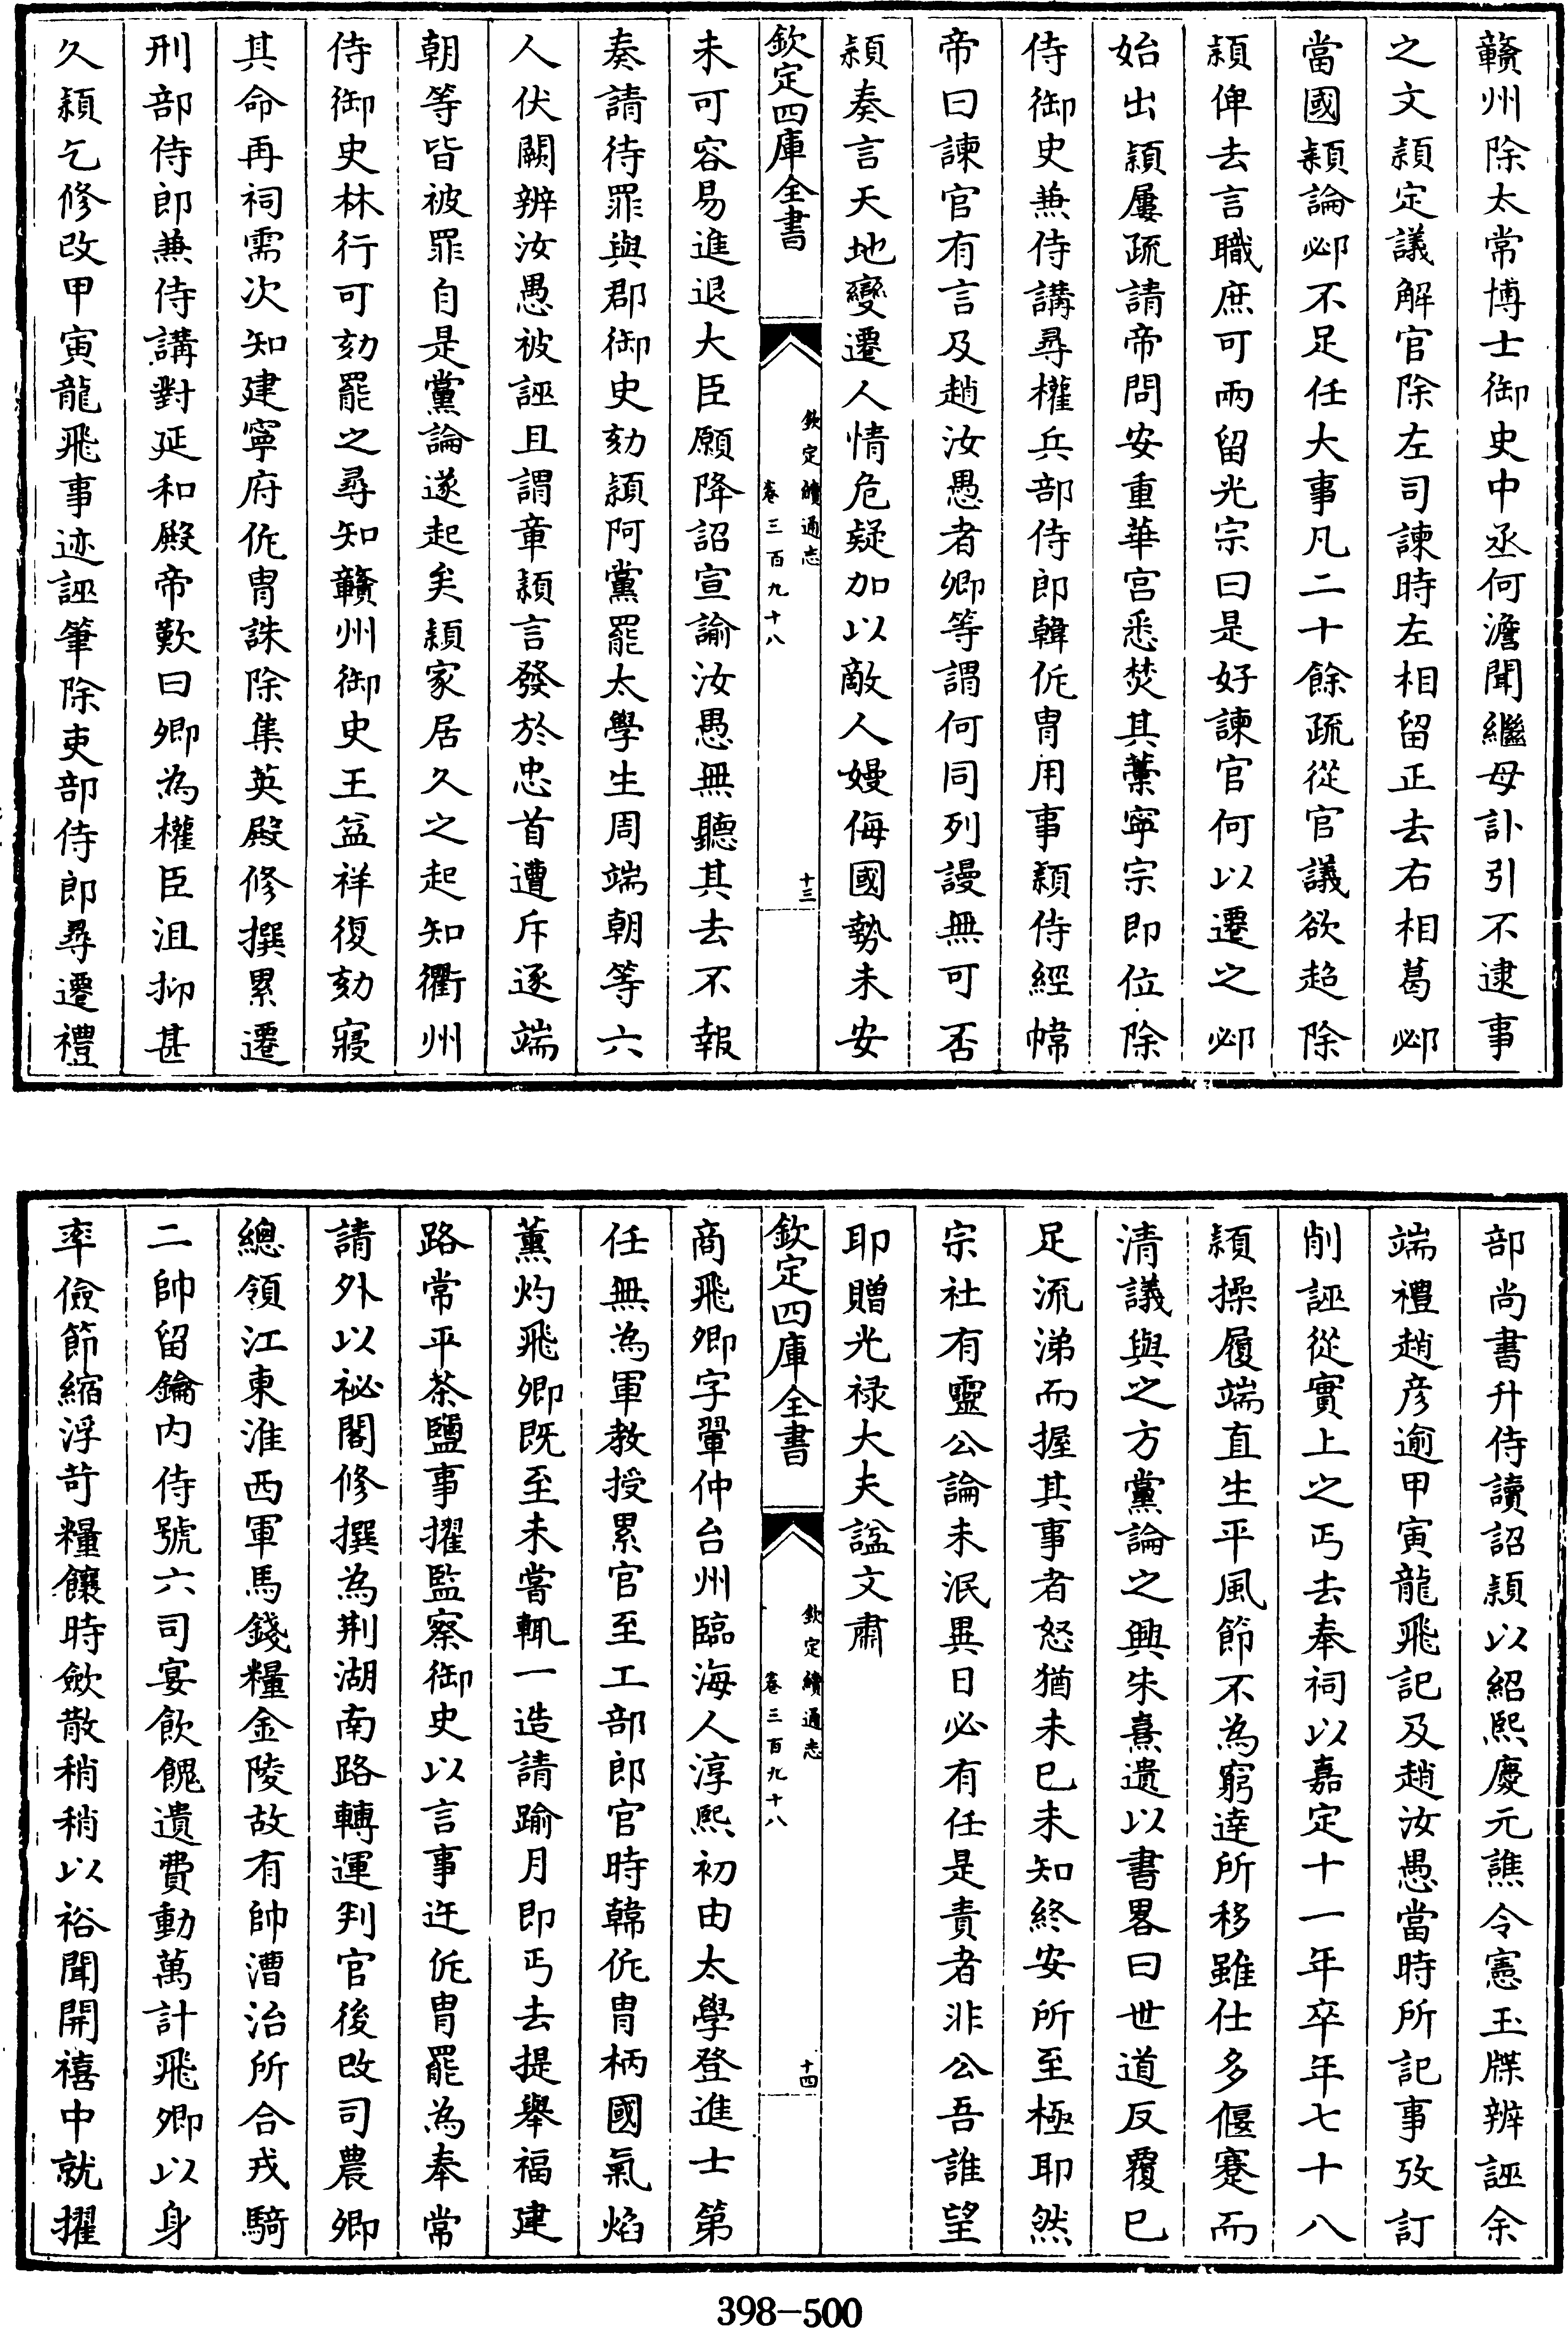 贛州除太常博士御史中丞何澹聞繼母訃引不逮事
之文頴定議解官除左司諫時左相留正去右相葛邲
當國頴論邲不足任大事凡二十餘疏從官議欲超除
頴俾去言職庶可兩留光宗曰是好諫官何以遷之邲
始出頴屢疏請帝問安重華宫悉焚其藳寧宗即位除
侍御史兼侍講尋權兵部侍郎韓侂胄用事頴侍經幃
帝曰諫官有言及趙汝愚者卿等謂何同列謾無可否
頴奏言天地變遷人情危疑加以敵人嫚侮國勢未安
欽定四庫全書
欽定續通志
卷三百九十八
十三
未可容易進退大臣願降詔宣諭汝愚無聽其去不報
奏請待罪與郡御史劾頴阿黨罷太學生周端朝等六
人伏闕辨汝愚被誣且謂章頴言發於忠首遭斥逐端
朝等皆被罪自是黨論遂起矣頴家居久之起知衢州
侍御史林行可劾罷之尋知贛州御史王益祥復劾寢
其命再祠需次知建寧府侂胄誅除集英殿修撰累遷
刑部侍郎兼侍講對延和殿帝歎曰卿為權臣沮抑甚
久頴乞修改甲寅龍飛事迹誣筆除吏部侍郎尋遷禮
部尚書升侍讀詔頴以紹熙慶元譙令憲玉牒辨誣余
端禮趙彦逾甲寅龍飛記及趙汝愚當時所記事攷訂
削誣從實上之丐去奉祠以嘉定十一年卒年七十八
頴操履端直生平風節不為窮達所移雖仕多偃蹇而
清議與之方黨論之興朱熹遺以書畧曰世道反覆已
足流涕而握其事者怒猶未已未知終安所至極耶然
宗社有靈公論未泯異日必有任是責者非公吾誰望
耶贈光禄大夫諡文肅
欽定四庫全書
欽定續通志
卷三百九十八
十四
商飛卿字翬仲台州臨海人淳熙初由太學登進士第
任無為軍教授累官至工部郎官時韓侂胄柄國氣焰
薰灼飛卿既至未嘗輒一造請踰月即丐去提舉福建
路常平茶鹽事擢監察御史以言事迕侂胄罷為奉常
請外以祕閣修撰為荆湖南路轉運判官後改司農卿
總領江東淮西軍馬錢糧金陵故有帥漕治所合戎騎
二帥留鑰内侍號六司宴飲餽遺費動萬計飛卿以身
率儉節縮浮苛糧饟時斂散稍稍以裕聞開禧中就擢
398-500